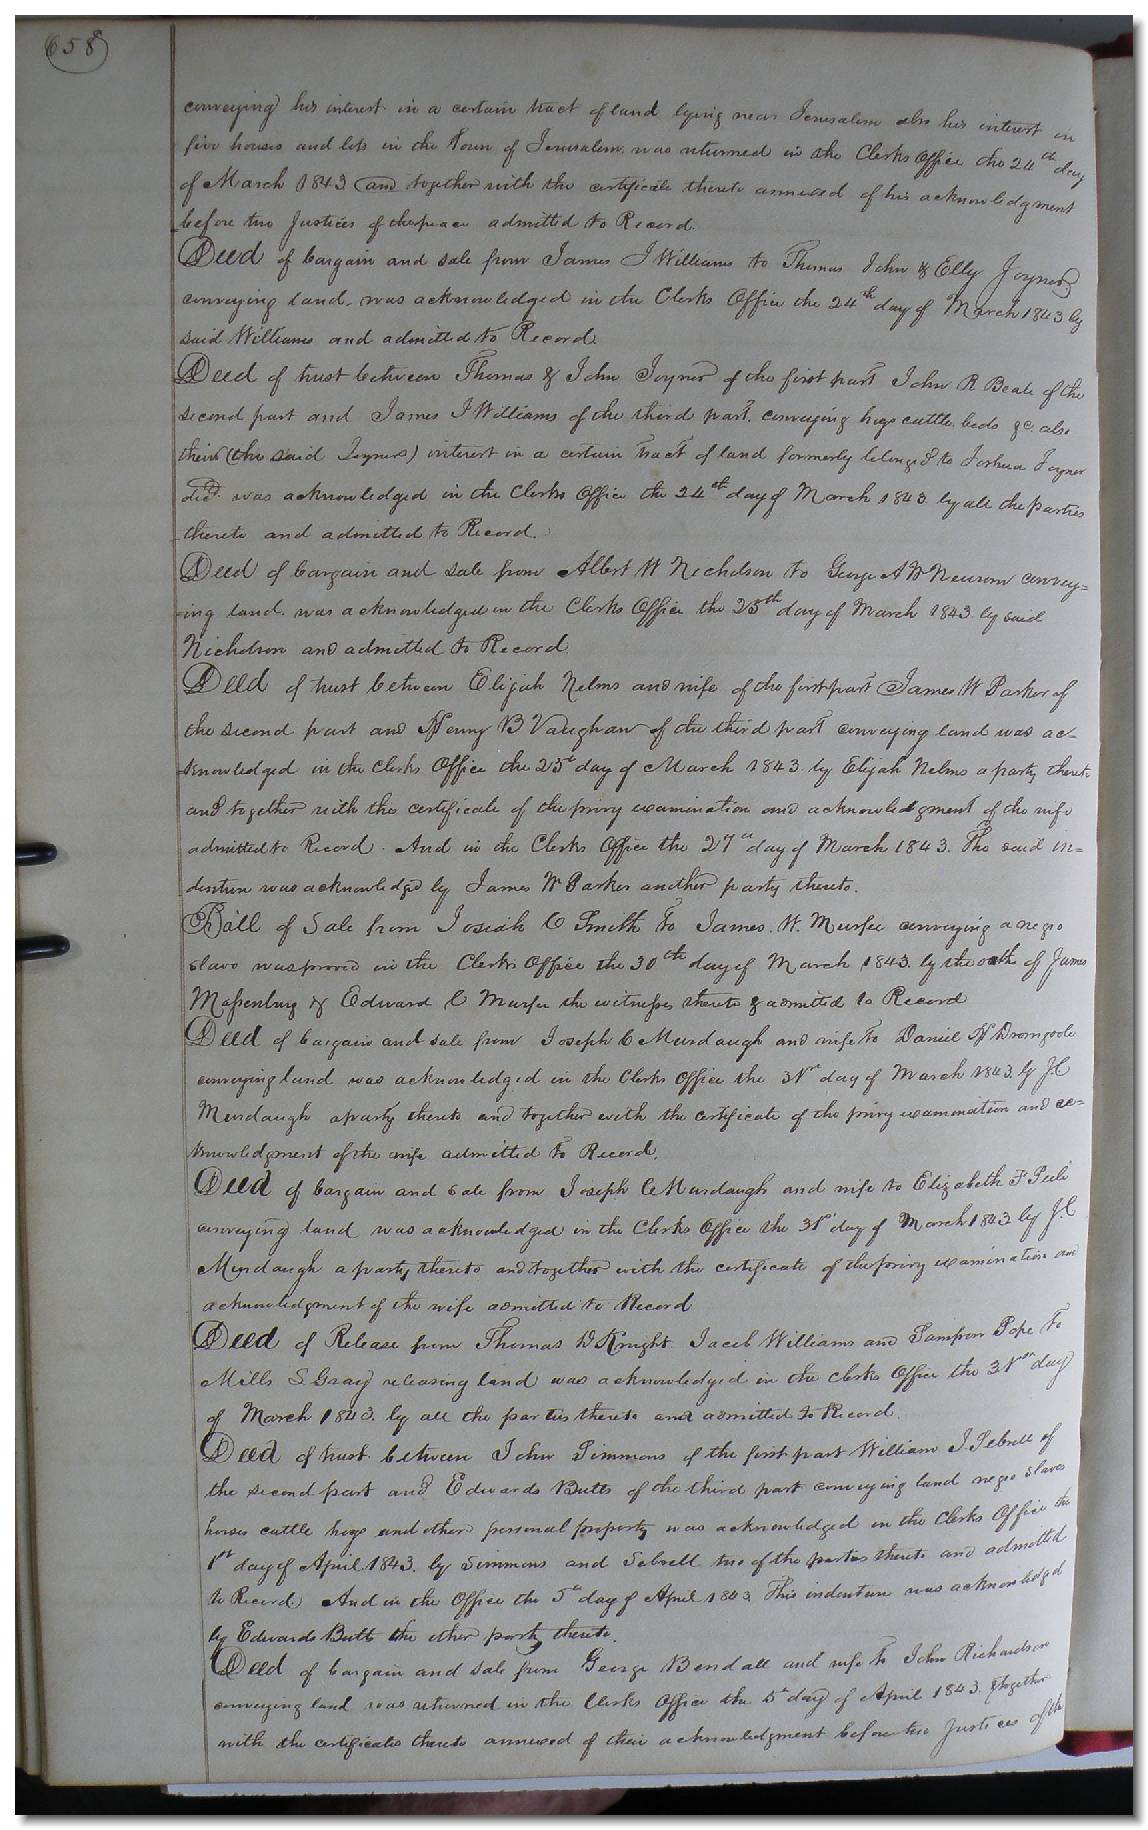 658
conveying his interest in a certain tract of land lying near Jerusalem also his interest in
five houses and lots in the Town of Jerusalem was returned in the Clerks Office the 24th day
of March 1843 and together with the certificate thereto annexed of his acknowledgment
before two Justices of the peace admitted to Record.
Deed of bargain and sale from James J Williams to Thomas John & Elly Joyner
conveying land, was acknowledged in the Clerks Office the 24th day of March 1843 by
said Williams and admitted to Record.
Deed of trust between Thomas & John Joyner of the first part John R Beale of the
second part and James J Williams of the third part, conveying hogs cattle beds &c. also
their (the said Joyners) interest in a certain tract of land formerly belonged to Joshua Joyner
decd. was acknowledged in the Clerks Office the 24th day of March 1843 by all the parties
thereto and admitted to Record.
Deed of bargain and sale from Albert W Nicholson to George A W Newsom convey=
=ing land, was acknowledged in the Clerks Office the 25th day of March 1843 by said
Nicholson and admitted to Record.
Deed of trust between Elijah Nelms and wife of the first part James W Parker of
the second part and Henry B Vaughan of the third part conveying land was ac-
knowledged in the Clerks Office the 25th day of March 1843 by Elijah Nelms a party thereto
and together with the certificate of the privy examination and acknowledgment of the wife
admitted to Record. And in the Clerks Office the 27th day of March 1843. The said in=
denture was acknowledged by James W Parker another party thereto.
Bill of Sale from Josiah C Smith to James. W. Murfee conveying a negro
slave was proved in the Clerks Office the 30th day of March 1843. by the oath of James
Massenburg & Edward C Murfee the witnesses thereto & admitted to Record
Deed of bargain and sale from Joseph C Murdaugh and wife to Daniel H Dromgoole
conveying land was acknowledged in the Clerks Office the 31st day of March 1843. by J.C
Murdaugh a party thereto and together with the certificate of the privy examination and ac=
knowledgment of the wife admitted to Record.
Deed of bargain and sale from Joseph C Murdaugh and wife to Elizabeth F Peele
conveying land was acknowledged in the Clerks Office the 31st day of March 1843 by J.C
Murdaugh a party thereto and together with the certificate of the privy examination and
acknowledgment of the wife admitted to Record
Deed of Release from Thomas D Knight Jacob Williams and Sampson Pope to
Mills S Gray releasing land was acknowledged in the Clerks Office the 31st day
of March 1843. by all the parties thereto and admitted to Record.
Deed of trust between John Simmons of the first part William J. Sebrell of
the second part and Edwards Butts of the third part conveying land negro slaves
horses cattle hogs and other personal property was acknowledged in the Clerks Office the
1st day of April 1843. by Simmons and Sebrell two of the parties thereto and admitted
to Record. And in the Office the 5th day of April 1843 This indenture was acknowledged
by Edwards Butts the other party thereto.
Deed of bargain and sale from George Bendall and wife to John Richardson
conveying land was returned in the Clerks Office the 5th day of April 1843. & together
with the certificates thereto annexed of their acknowledgment before two Justices of the